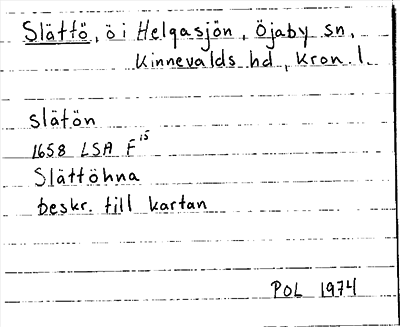 Slättö, ö i Helgasjön, Öjaby sn,
Kinnevalds hd, Kron. l.
slätön
1658 LSA F¹⁵
Slättöhna
beskr. till kartan
POL 1974